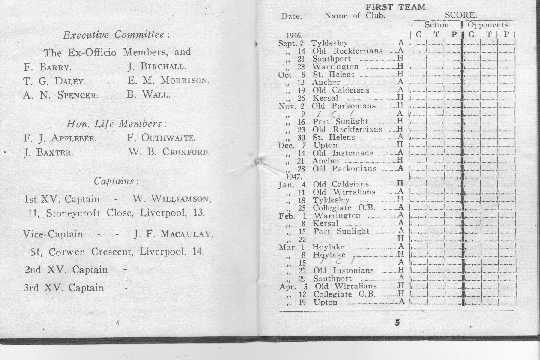 Executive Committee :
The Ex-Officio Members, and
F. BARRY. J. BIRCHALL.
T. G. DALEY. E. M. MORRISON.
A. N. SPENCER. B. WALL.
Hon. Life Members :
F. J. APPLEBEE. F. OUTHWAITE.
J. BAXTER. W. B. CROXFORD.
Captains :
1st XV. Captain - W. WILLIAMSON,
11, Stoneycroft Close, Liverpool, 13.
Vice-Captain - - J. F. MACAULAY,
51, Corwen Crescent, Liverpool, 14.
2nd XV. Captain -
3rd XV. Captain -
4
FIRST TEAM
Date. Name of Club. SCORE.
Sefton Opponents
G T P G T P
1946.
Sept. 7 Tyldesley A
„ 14 Old Rockferrians A
„ 21 Southport H
„ 28 Warrington H
Oct. 5 St. Helens H
„ 12 Ancher A
„ 19 Old Caldeians A
„ 26 Kersal H
Nov. 2 Old Parkonians H
„ 9 A
„ 16 Port Sunlight H
„ 23 Old Rockferrians H
„ 30 St. Helens A
Dec. 7 Upton H
„ 14 Old Instonians A
„ 21 Ancher H
„ 28 Old Parkonians A
1947.
Jan. 4 Old Caldeians H
„ 11 Old Wirralians A
„ 18 Tyldesley H
„ 25 Collegiate O.B. A
Feb. 1 Warrington A
„ 8 Kersal A
„ 15 Port Sunlight A
„ 22 H
Mar. 1 Hoylake A
„ 8 Hoylake H
„ 15 A
„ 22 Old Instonians H
„ 29 Southport A
Apr. 5 Old Wirralians H
„ 12 Collegiate O.B. H
„ 19 Upton A
5